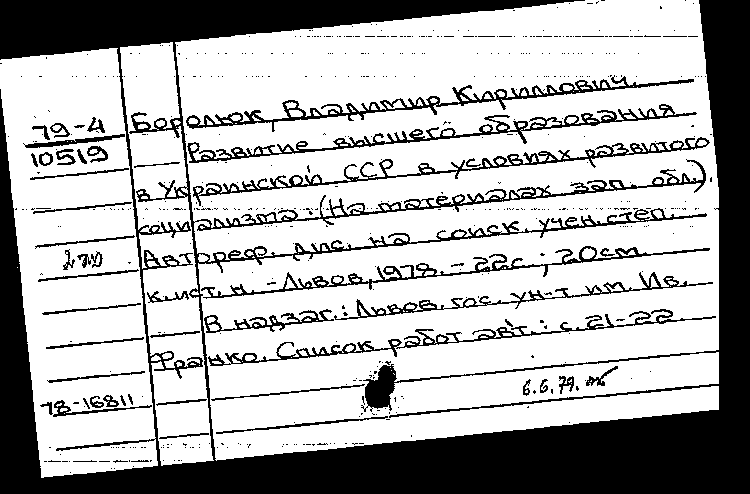 79-4
10519
Боролюк, Владимир Кириллович.
Развитие высшего образования
в Украинской ССР в условиях развитого
социализма: (На материалах зап. обл.).
Автореф. дис. на соиск. учен. степ.
к. ист. н. - Львов, 1978. - 22с.; 20см.
В надзаг.: Львов. гос. ун-т им. Ив.
Франко. Список работ авт.: с. 21-22.
78-16811
6.6.79.